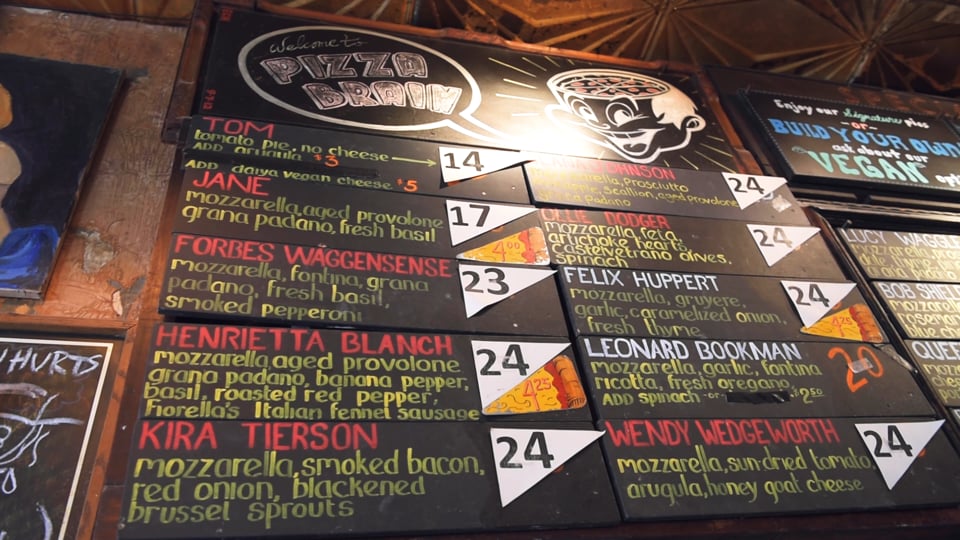 Welcome to
PIZZA
BRAIN
TOM
tomato pie, no cheese
ADD arugula $3
14
ADD daiya vegan cheese $5
JANE
mozzarella, aged provolone
grana padano, fresh basil
17
4.00
FORBES WAGGENSENSE
mozzarella, fontina, grana
padano, fresh basil,
smoked pepperoni
23
HENRIETTA BLANCH
mozzarella, aged provolone
grana padano, banana pepper,
basil, roasted red pepper,
Fiorella's Italian fennel sausage
24
4.25
KIRA TIERSON
mozzarella, smoked bacon,
red onion, blackened
brussel sprouts
24
JOHNSON
mozzarella, prosciutto
scallion, aged provolone
padano
24
OLLIE DODGER
mozzarella, feta,
artichoke hearts,
castelvetrano olives,
spinach
24
FELIX HUPPERT
mozzarella, gruyere,
garlic, caramelized onion,
fresh thyme
24
4.25
LEONARD BOOKMAN
mozzarella, garlic, fontina
ricotta, fresh oregano
ADD spinach -or- $2.50
20
WENDY WEDGEWORTH
mozzarella, sun-dried tomato,
arugula, honey goat cheese
24
Enjoy our Signature pies
-or-
BUILD YOUR OWN
ask about our
VEGAN
LUCY WAGGLE
BOB SHIE
QUEE
HURTS